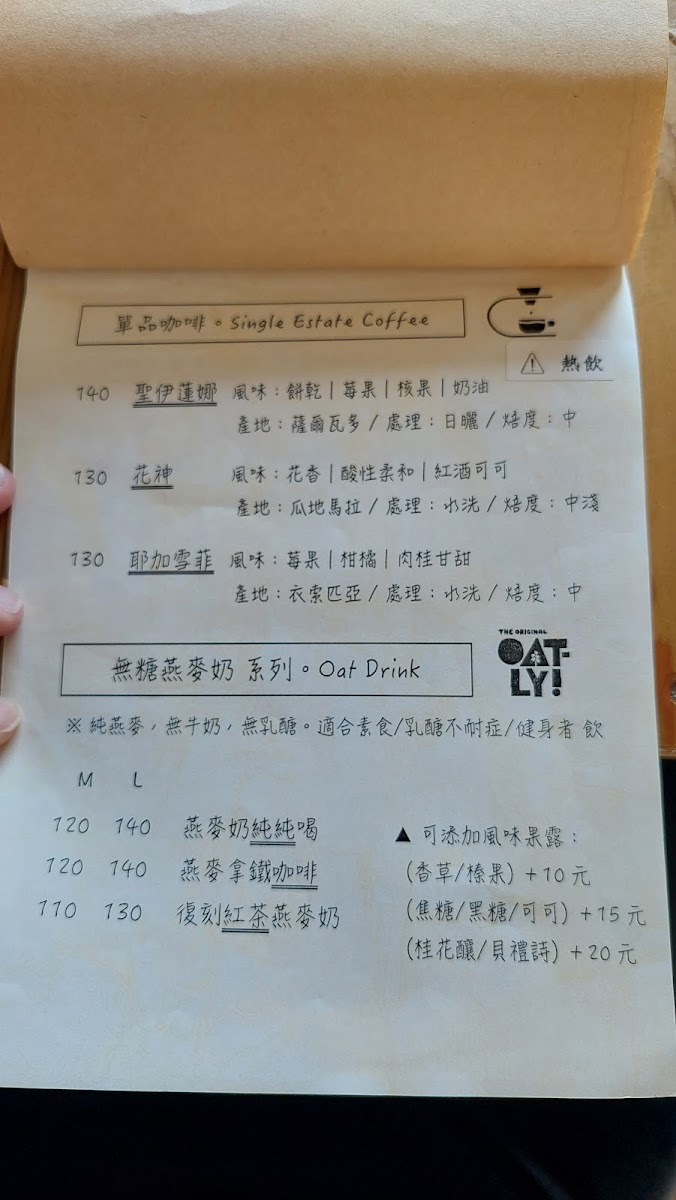 單品咖啡。Single Estate Coffee
⚠ 熱飲
140 聖伊蓮娜 風味：餅乾|莓果|核果|奶油
產地：薩爾瓦多/處理：日曬/焙度：中
130 花神 風味：花香|酸性柔和|紅酒可可
產地：瓜地馬拉/處理：水洗/焙度：中淺
130 耶加雪菲 風味：莓果|柑橘|肉桂甘甜
產地：衣索匹亞/處理：水洗/焙度：中
THE ORIGINAL
OAT-
LY!
無糖燕麥奶 系列。Oat Drink
※ 純燕麥，無牛奶，無乳醣。適合素食/乳醣不耐症/健身者 飲
M L
120 140 燕麥奶純純喝
120 140 燕麥拿鐵咖啡
110 130 復刻紅茶燕麥奶
▲ 可添加風味果露：
(香草/榛果) +10 元
(焦糖/黑糖/可可) +15 元
(桂花釀/貝禮詩) +20 元